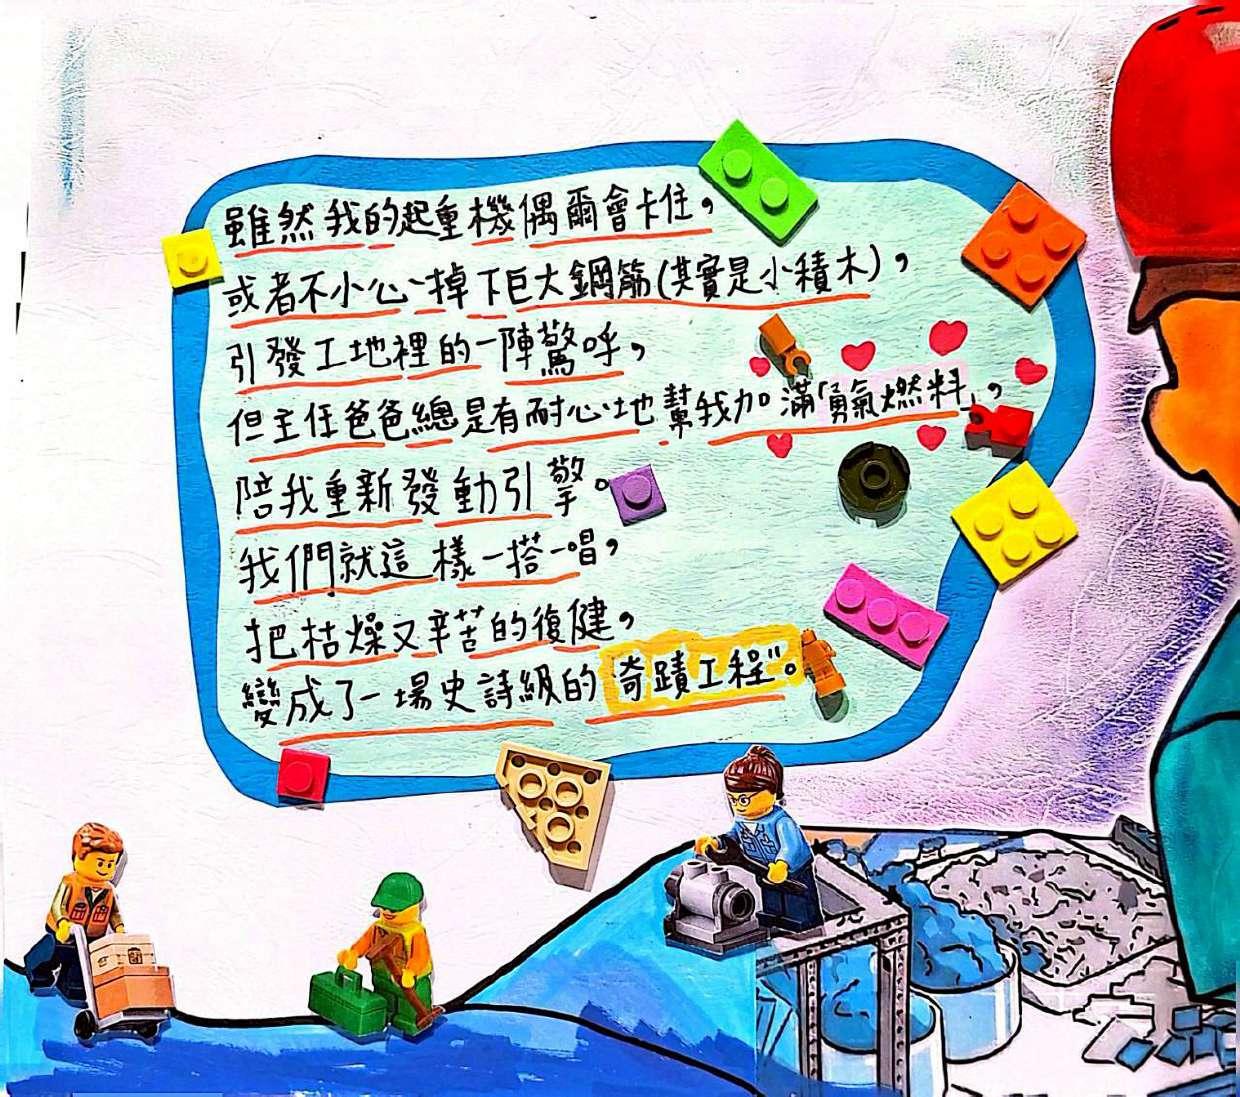 雖然我的起重機偶爾會卡住，
或者不小心掉下巨大鋼筋(其實是小積木)，
引發工地裡的一陣驚呼，
但主任爸爸總是有耐心地幫我加滿「勇氣燃料」，
陪我重新發動引擎。
我們就這樣一搭一唱，
把枯燥又辛苦的復健，
變成了一場史詩級的"奇蹟工程"。